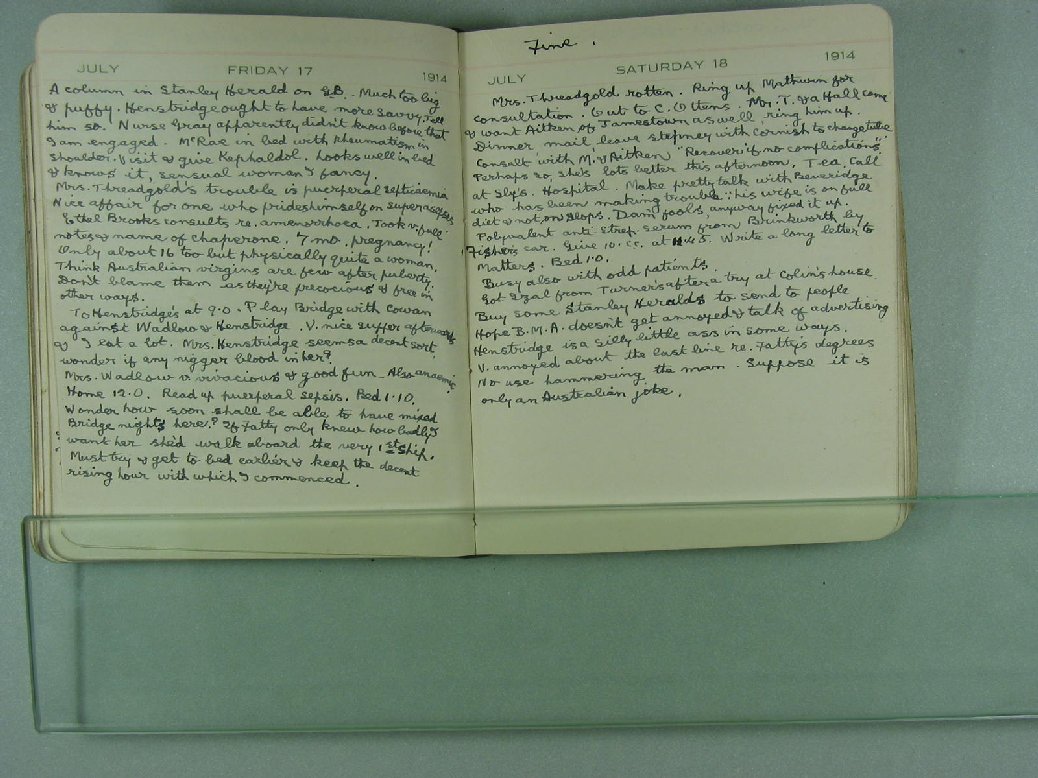 JULY FRIDAY 17 1914
A column in Stanley Herald on GB. Much too big
& puffy. Henstridge ought to have more savvy, tell
him so. Nurse Gray apparently didn't know before that
I am engaged. McRae in bed with rheumatism in
shoulder. Visit & give Kephaldol. Looks well in bed
& knows it, sensual woman I fancy.
Mrs. Threadgold's trouble is puerperal septicaemia
Nice affair for one who prides himself on super asepsis
Ethel Brooks consults re. amenorrhoea. Took v. full
notes & name of chaperone. 7 mo. pregnancy!
Only about 16 too but physically quite a woman.
Think Australian virgins are few after puberty.
Don't blame them as they're precocious & free in
other ways.
To Henstridge's at 9.0. Play Bridge with Cowan
against Wadlow & Henstridge. V. nice supper afterwards
& I eat a lot. Mrs. Henstridge seems a decent sort.
wonder if any nigger blood in her?
Mrs. Wadlow v. vivacious & good fun. Also anaemic.
Home 12.0. Read up puerperal sepsis. Bed 1.10.
Wonder how soon shall be able to have mixed
Bridge nights here? If Fatty only knew how badly I
want her she'd walk aboard the very 1st ship.
Must try & get to bed earlier & keep the decent
rising hour with which I commenced.
Fine.
JULY SATURDAY 18 1914
Mrs. Threadgold rotten. Ring up Mathwin for
consultation. Out to C. O Tiens. Mr. T. & a Hall came
& want Aitken of Jamestown as well, ring him up.
Dinner mail leave stepney with Cornish to change tube.
Consult with M. & Aitken "Recover if no complications"
Perhaps so, she's lots better this afternoon. Tea. Call
at Sly's. Hospital. Make pretty talk with Beveridge
who has been making trouble: his wife is on full
diet & not on slops. Damfools, anyway fixed it up.
Polyvalent anti Strep. serum from Brinkworth by
Fisher's car. Give 10 cc. at 11.45. Write a long letter to
Matters. Bed 1.0.
Busy also with odd patients.
Got Izal from Turner's after a try at Colin's house
Buy some Stanley Heralds to send to people
Hope B.M.A. doesn't get annoyed & talk of advertising
Henstridge is a silly little ass in some ways.
V. annoyed about the last line re. Fatty's degrees
No use hammering the man. Suppose it is
only an Australian joke.